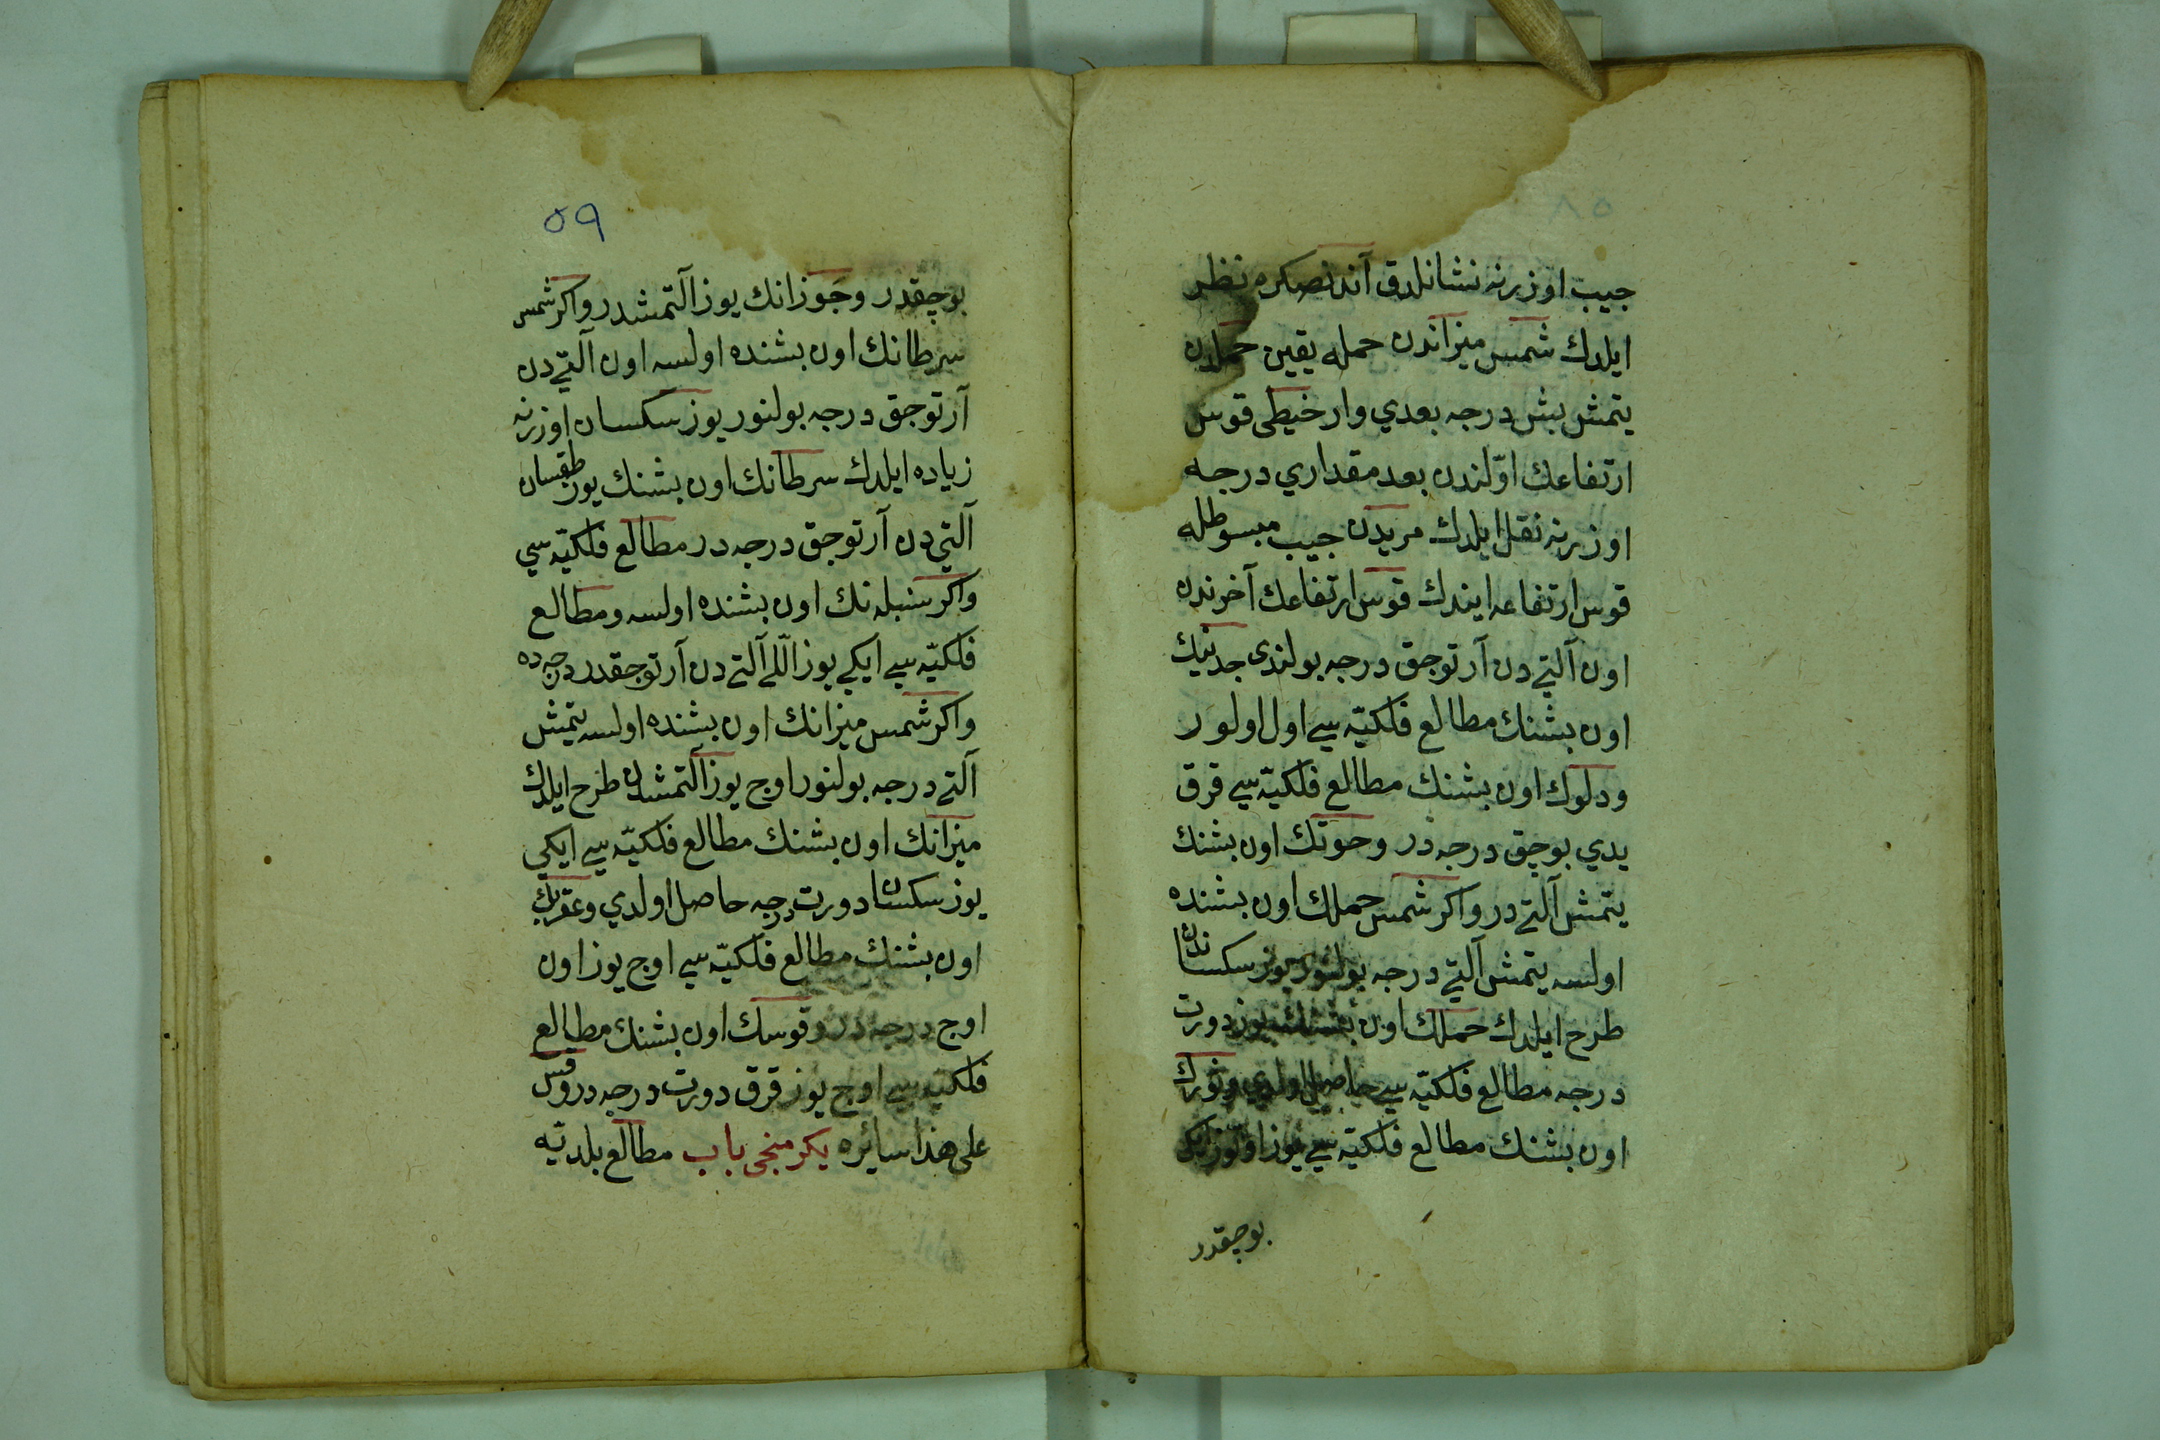 ٨٥
جيب اوزرنه نشانلدق آندنصكره نظر
ايلدك شمس ميزاندن حمله يقين حملدن
يتمش بش درجه بعدي وار خيطى قوس
ارتفاعك اوّلندن بعد مقداري درجه
اوزرنه نقل ايلدك مريدن جيب مبسوطله
قوس ارتفاعه ايندك قوس ارتفاعك آخرندن
اون آلتي دن آرتوجق درجه بولندى جدينك
اون بشنك مطالع فلكيّه سي اول اولور
ودلوك اون بشنك مطالع فلكيّه سي قرق
يدي بوچق درجه در وحوتك اون بشنك
يتمش آلتي در واكر شمس حملك اون بشنده
اولسه يتمش آلتي درجه بولنور يوز سكساندن
طرح ايلدك حملك اون بشنك يوز دورت
درجه مطالع فلكيّه سي حاصل اولدي وثورك
اون بشنك مطالع فلكيّه سي يوز اوتوز ايكى
بوچقدر
٥٩
بوچقدر وجوزانك يوز آلتمشدر واكر شمس
سرطانك اون بشنده اولسه اون آلتي دن
آرتوجق درجه بولنور يوز سكسان اوزرنه
زياده ايلدك سرطانك اون بشنك يوز طقسان
آلتي دن آرتوجق درجه در مطالع فلكيّه سي
واكر سنبله نك اون بشنده اولسه ومطالع
فلكيّه سي ايكي يوز اللي آلتي دن آرتوجقدر درجه ده
واكر شمس ميزانك اون بشنده اولسه يتمش
آلتي درجه بولنور اوج يوز آلتمشدن طرح ايلدك
ميزانك اون بشنك مطالع فلكيّه سي ايكي
يوز سكسان دورت درجه حاصل اولدي وعقربك
اون بشنك مطالع فلكيّه سي اوج يوز اون
اوج درجه در وقوسك اون بشنك مطالع
فلكيّه سي اوج يوز قرق دورت درجه در وقس
على هذا سائره يكرمنجى باب مطالع بلديّه